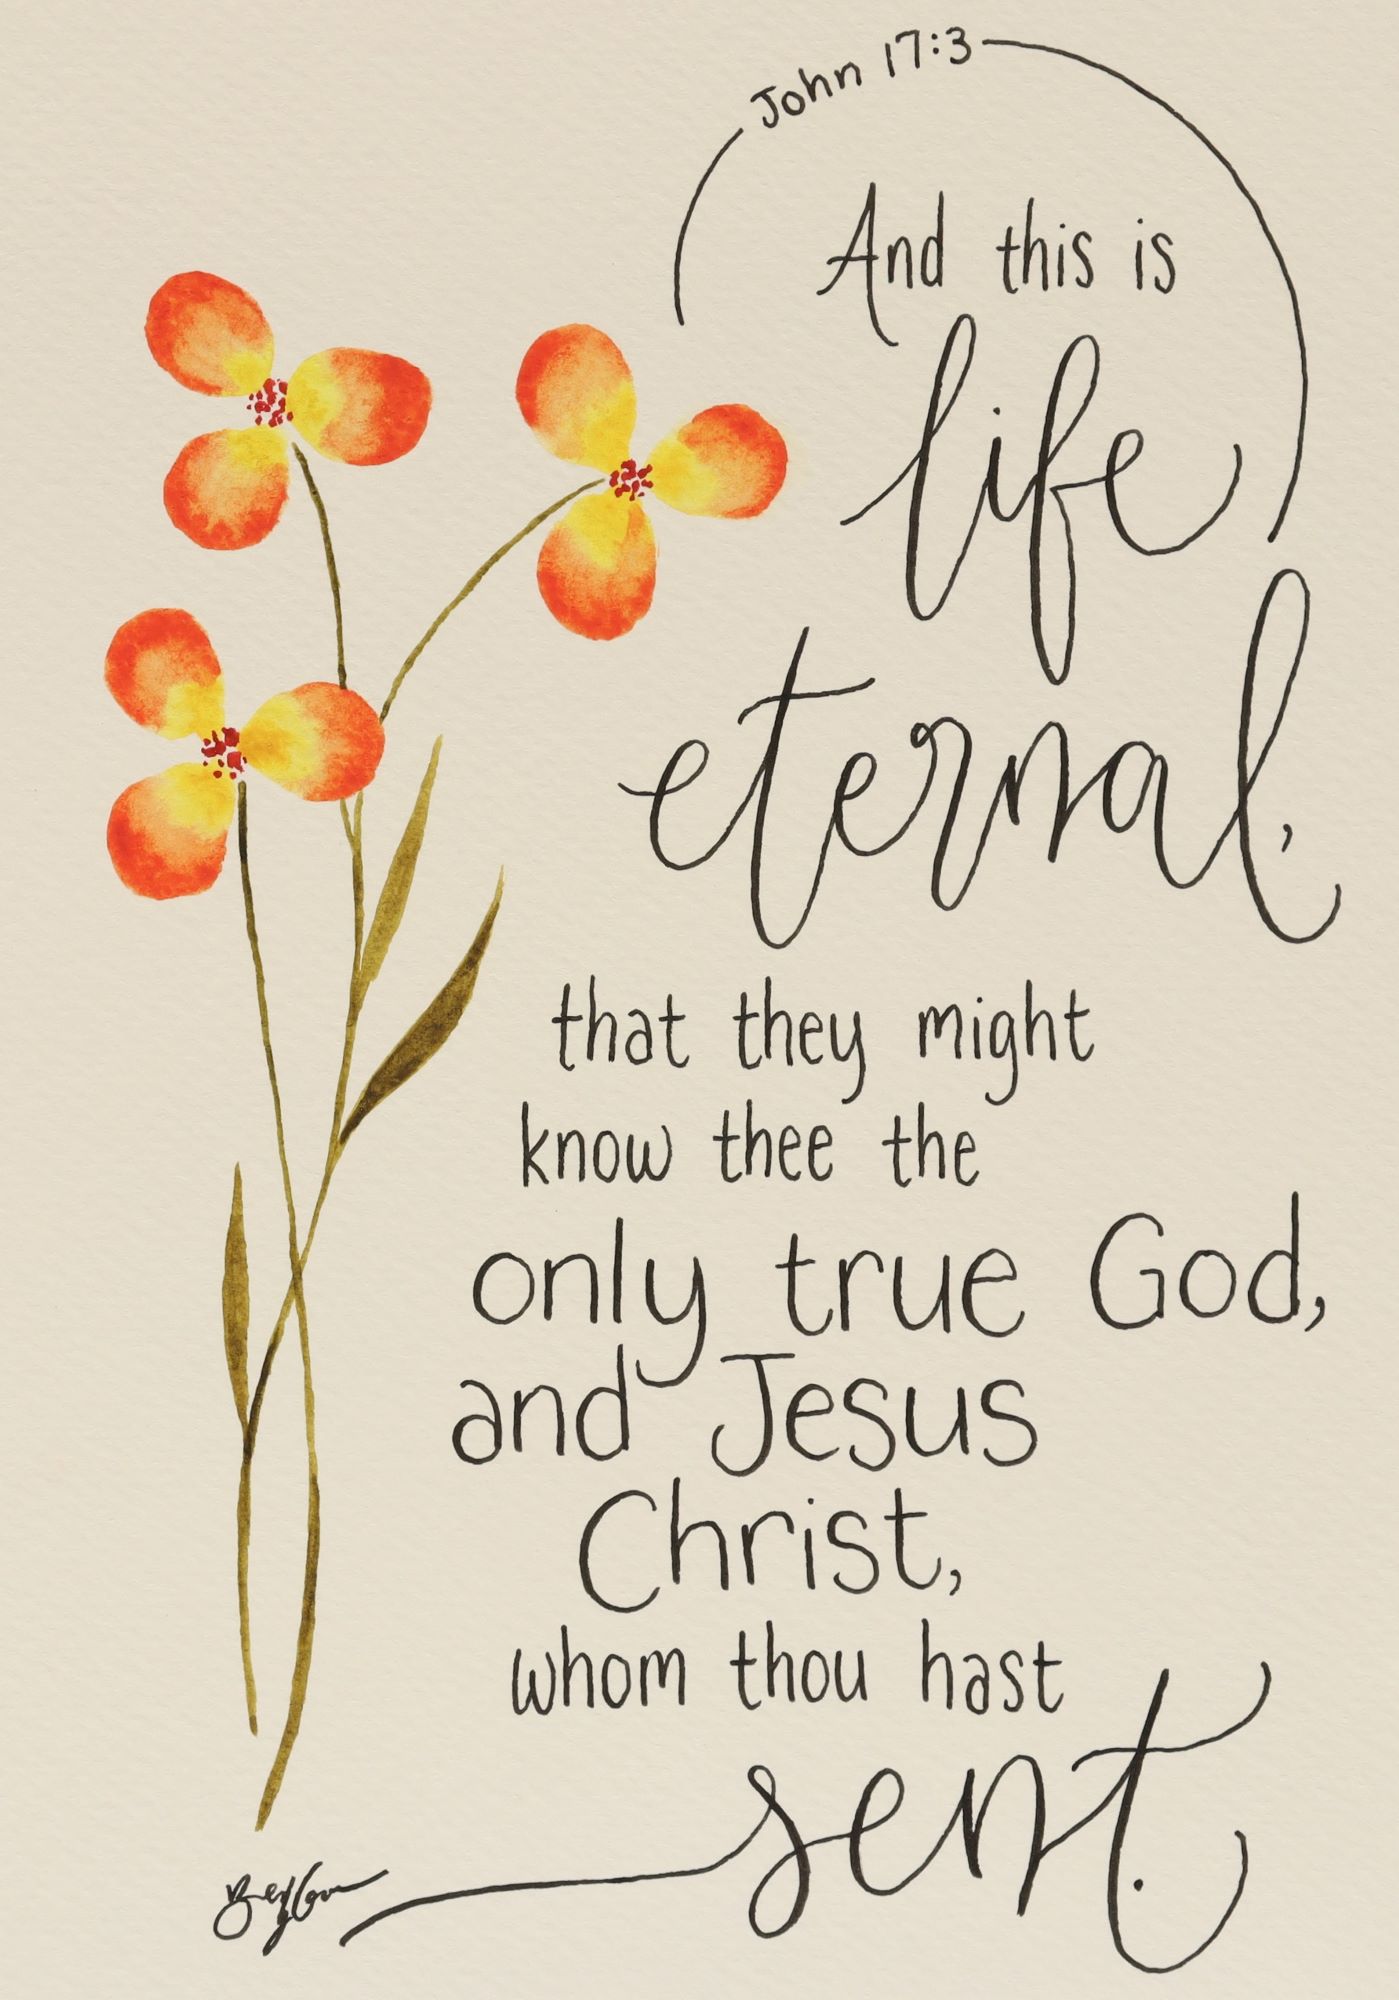 John 17:3
And this is
life
eternal,
that they might
know thee the
only true God,
and Jesus
Christ,
whom thou hast
sent.